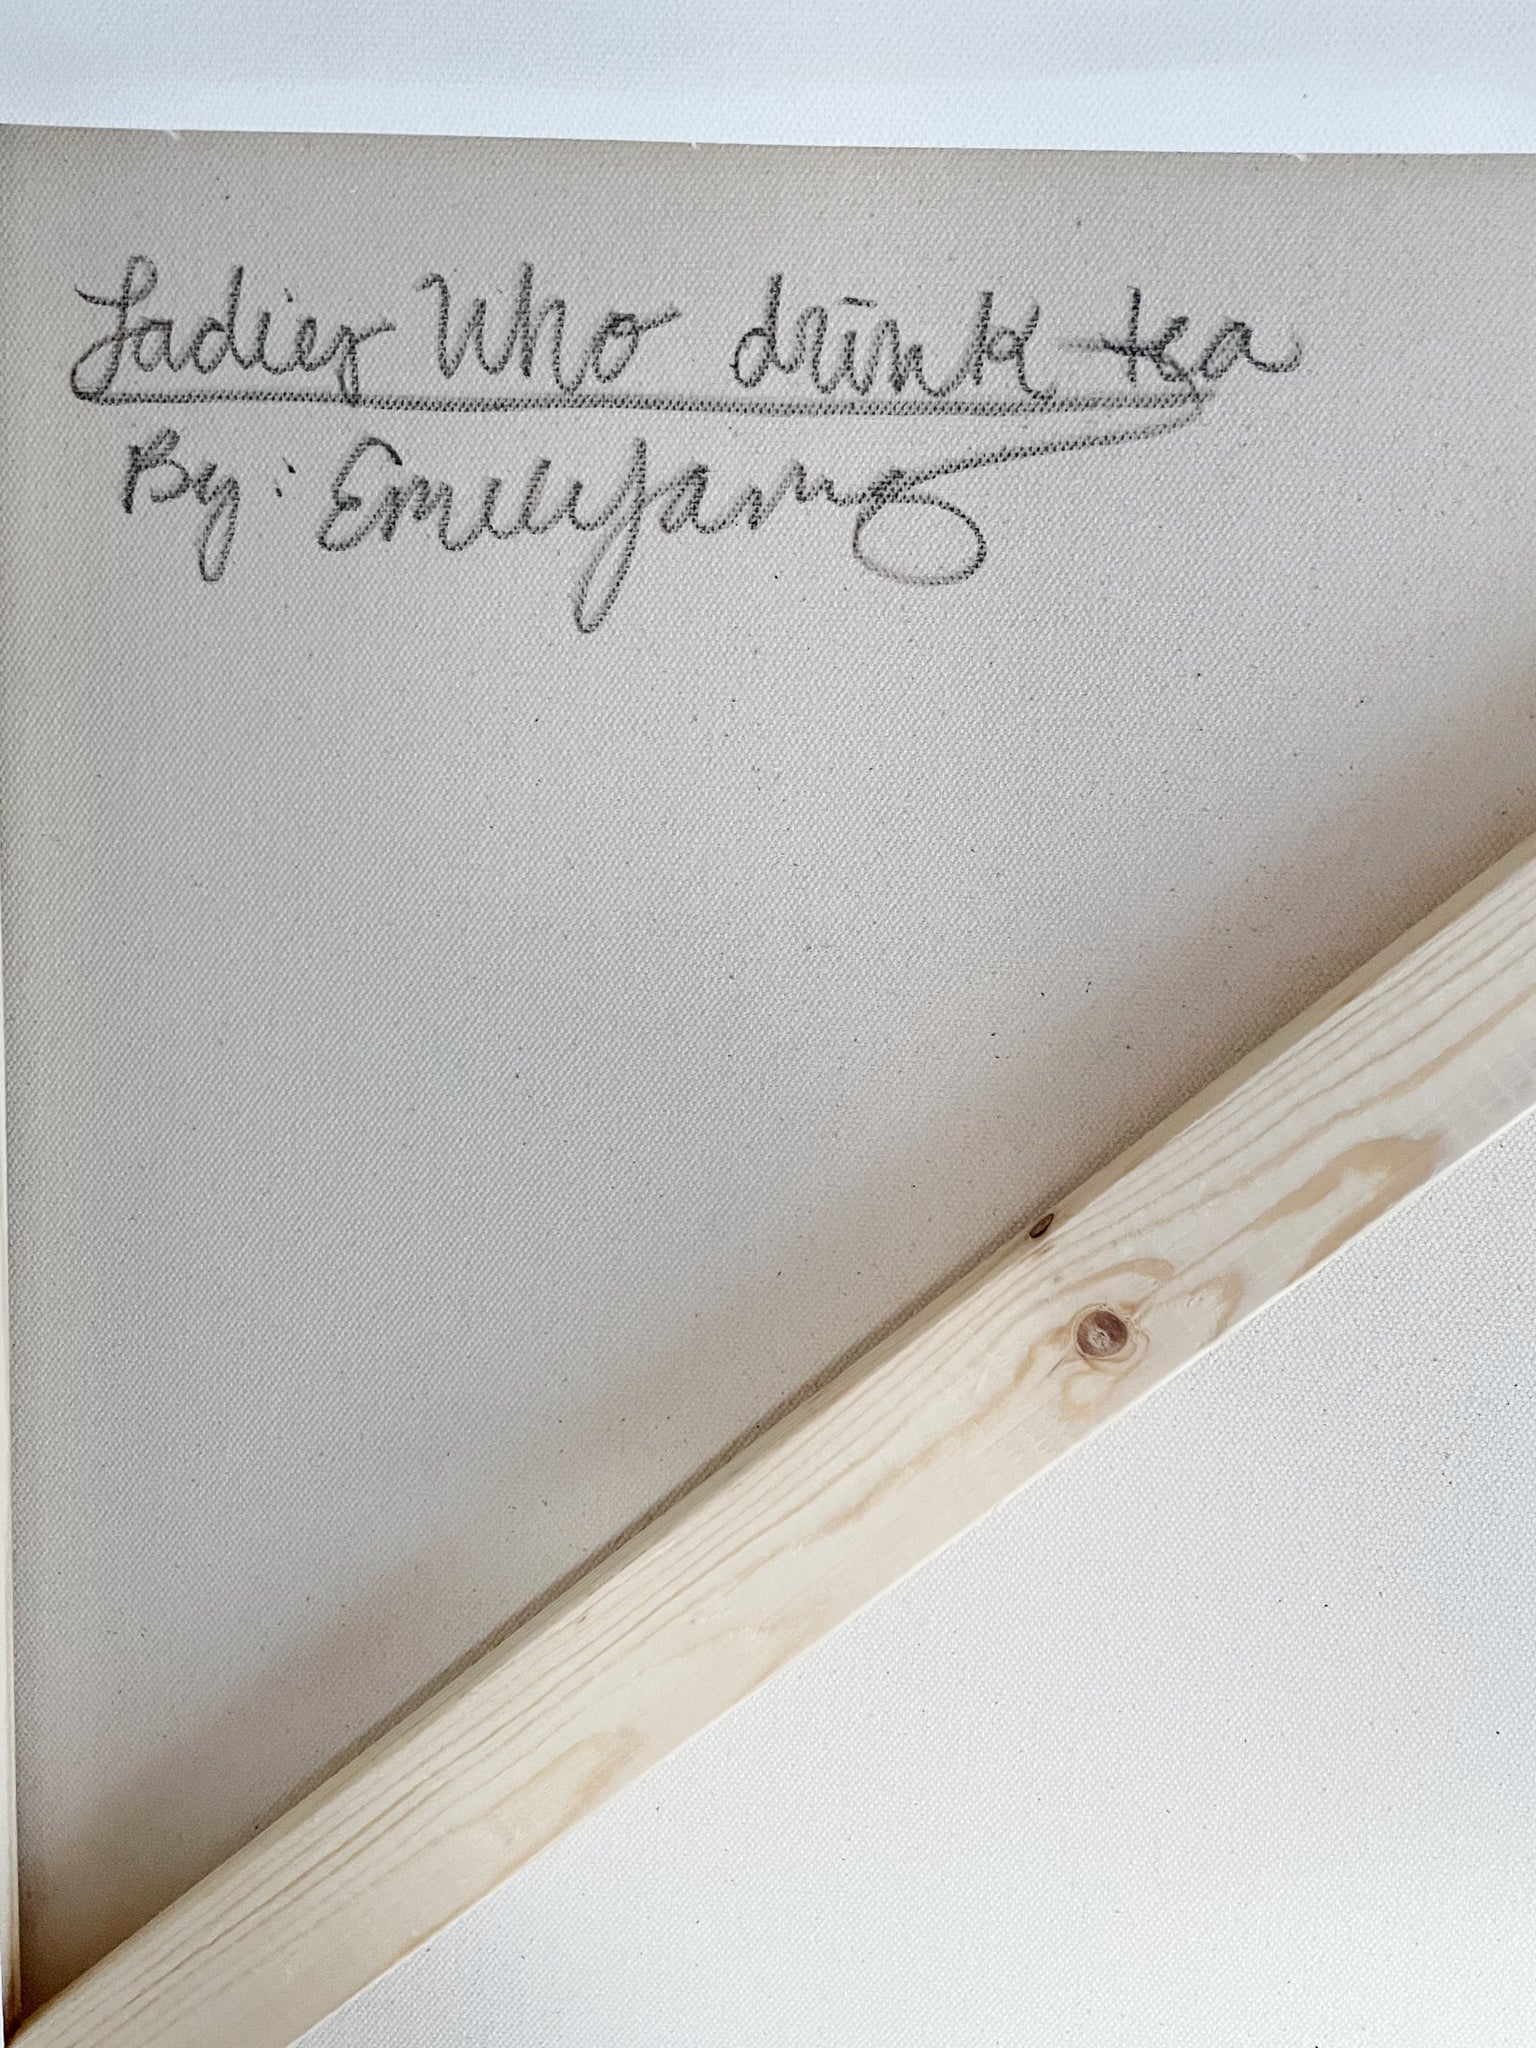 Ladies Who drink tea
By: